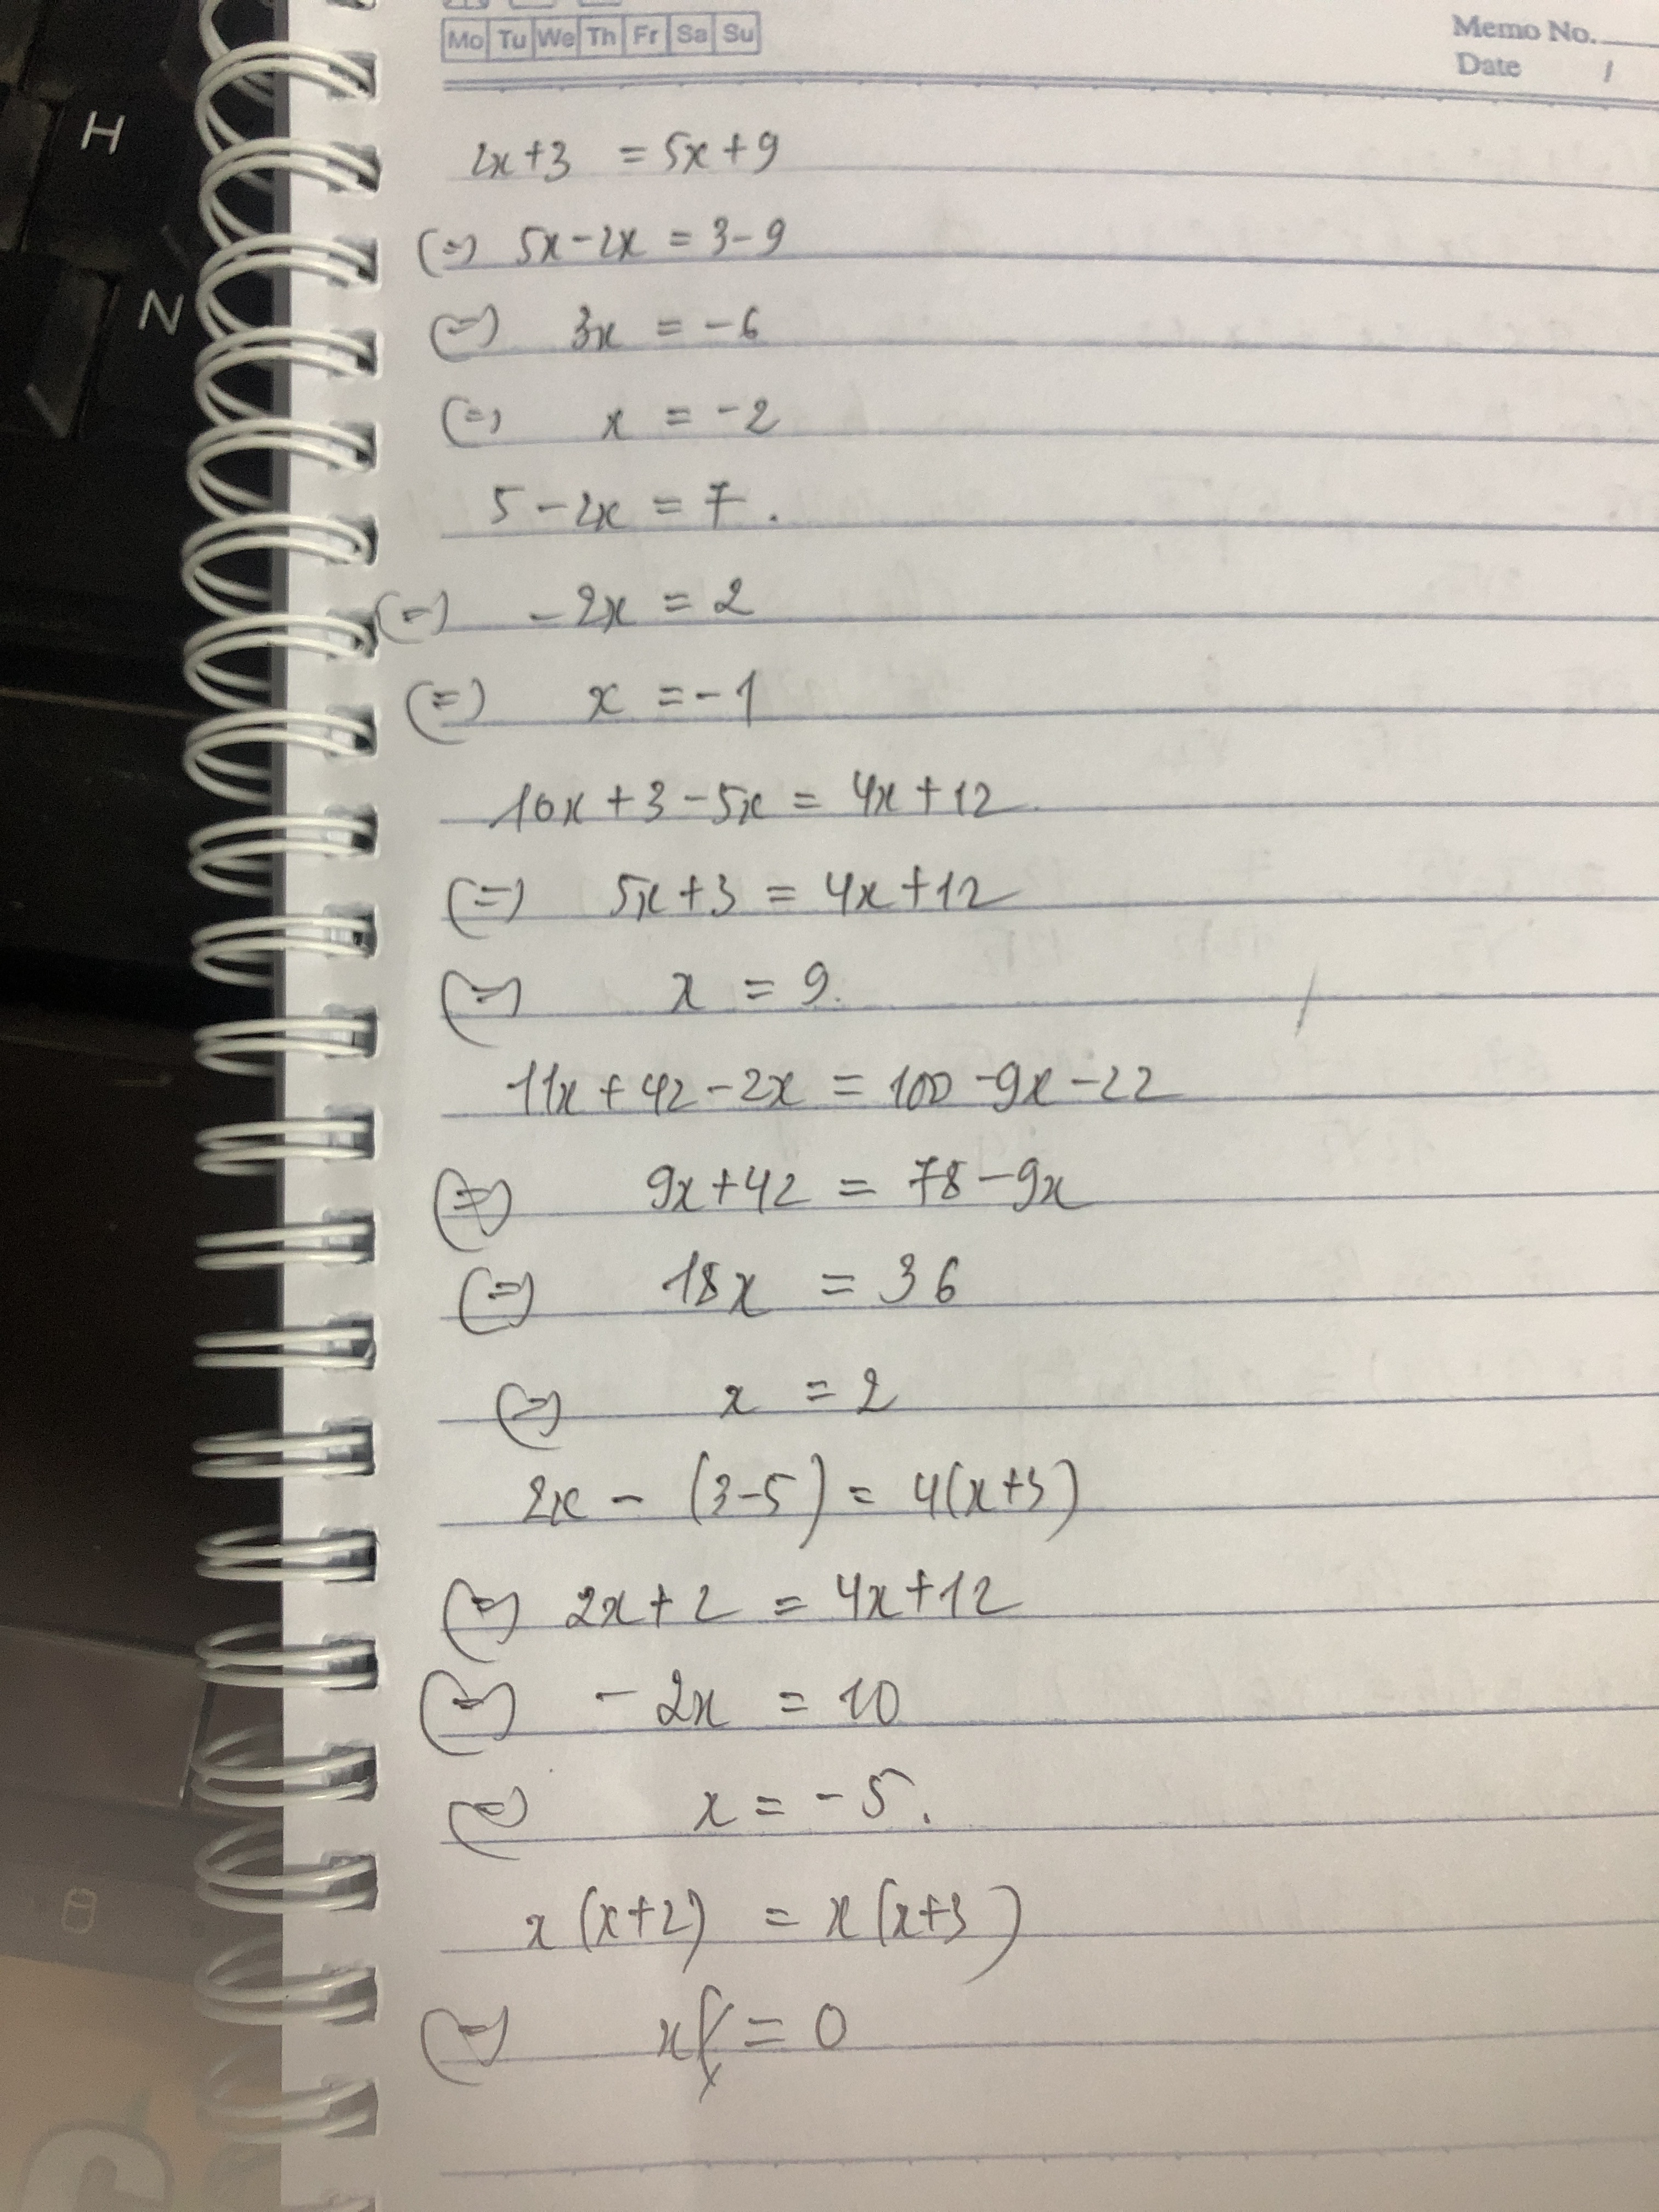 Mo Tu We Th Fr Sa Su
Memo No.
Date /
H
N
2x+3 = 5x+9
(=) 5x-2x = 3-9
(=) 3x = -6
(=) x = -2
5-2x = 7.
(=) -2x = 2
(=) x = -1
10x+3-5x = 4x+12
(=) 5x+3 = 4x+12
(=) x = 9.
11x+42-2x = 100-9x-22
(=) 9x+42 = 78-9x
(=) 18x = 36
(=) x = 2
2x - (3-5) = 4(x+3)
(=) 2x+2 = 4x+12
(=) -2x = 10
(=) x = -5.
x(x+2) = x(x+3)
(=) x = 0